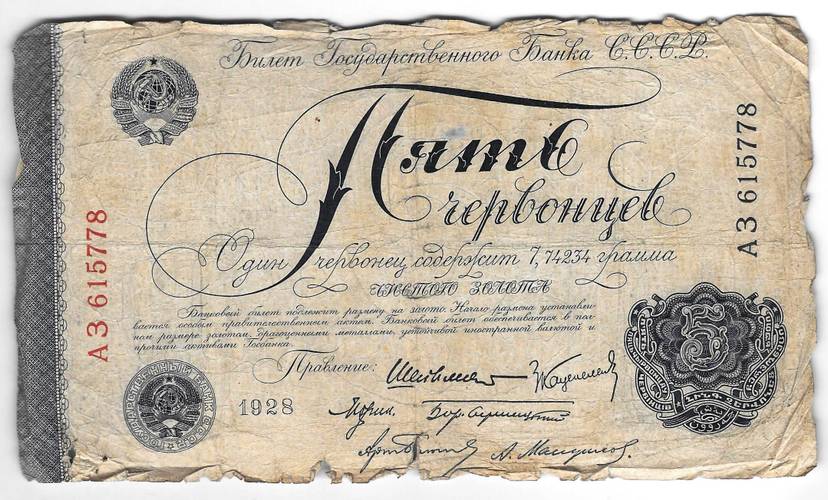 Билет Государственного Банка С.С.С.Р.
Пять
червонцев
Один червонец содержит 7,74234 грамма
чистого золота
Банковый билет подлежит размену на золото. Начало размена устанавли-
вается особым правительственным актом. Банковый билет обеспечивается в пол-
ном размере золотом, драгоценными металлами, устойчивой иностранной валютой и
прочими активами Госбанка.
Правление:
1928
АЗ 615778
АЗ 615778
5